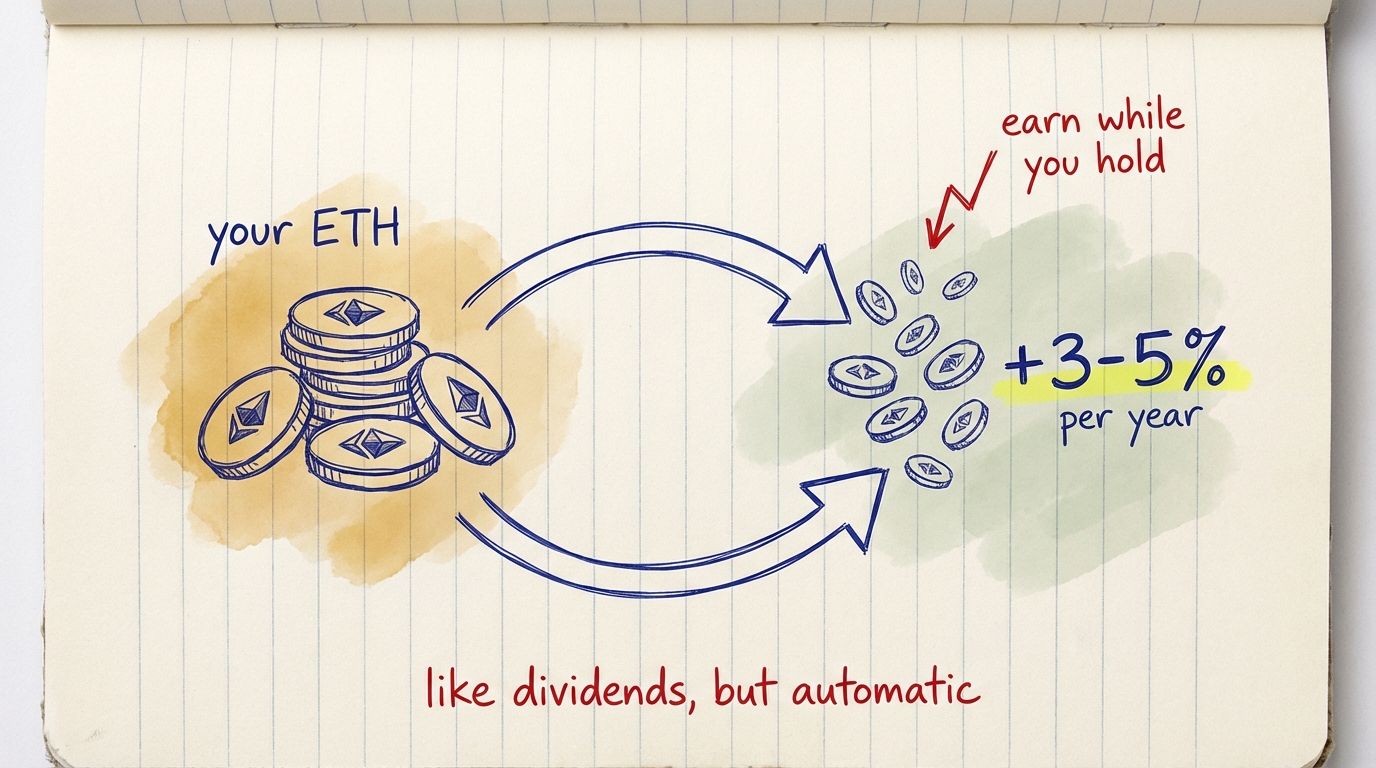 earn while
you hold
your ETH
+3-5%
per year
like dividends, but automatic